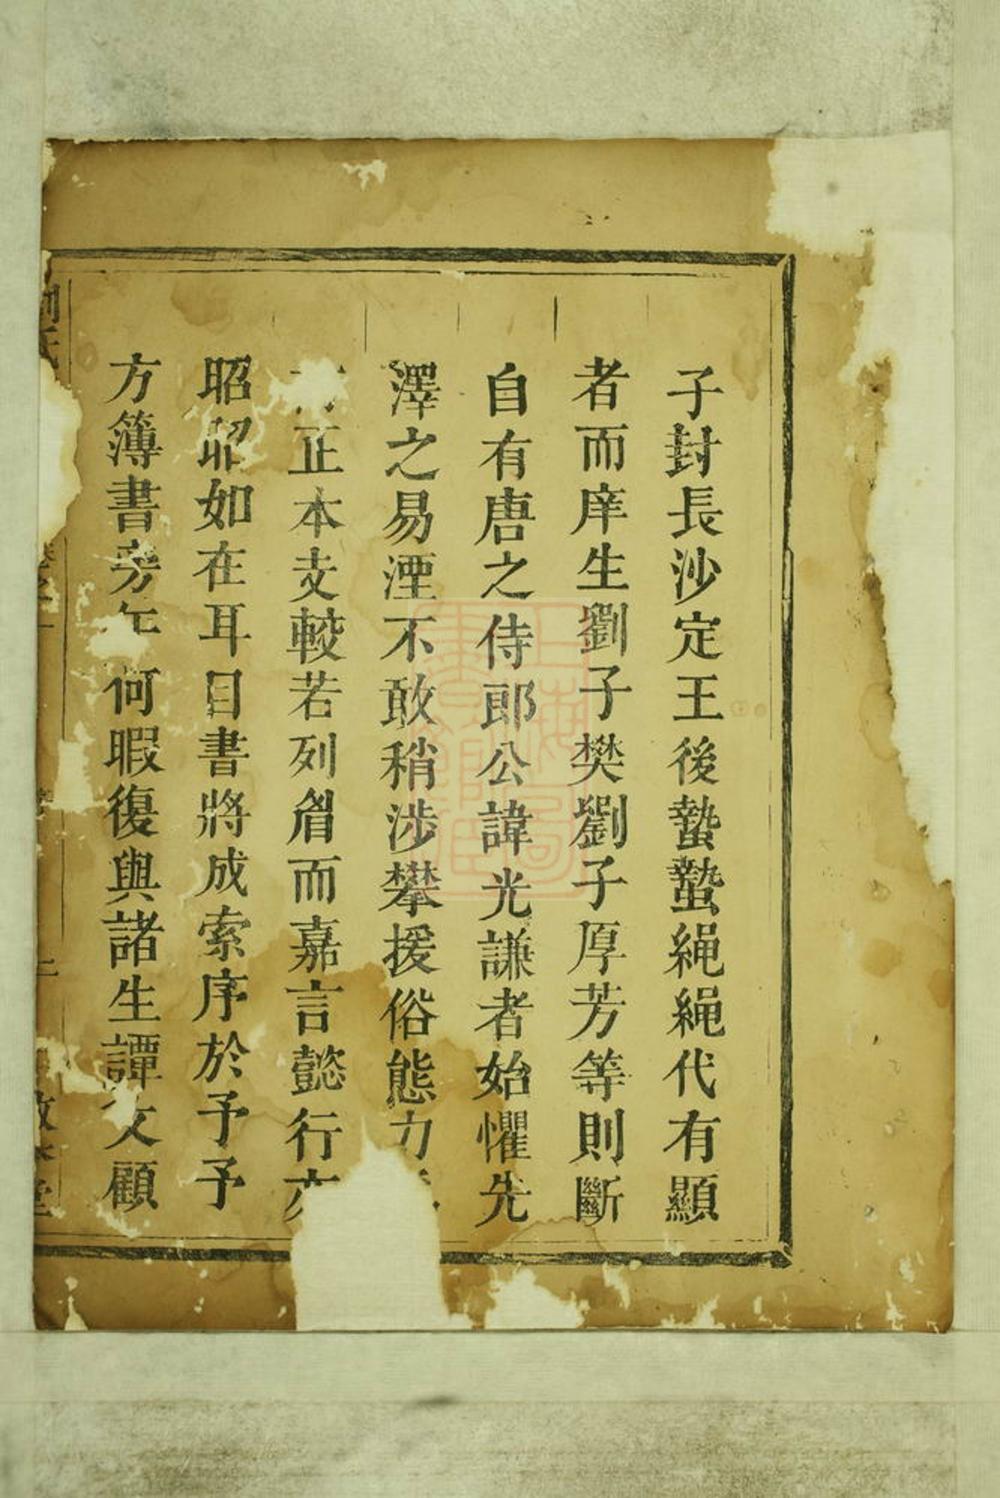 子封長沙定王後蟄蟄繩繩代有顯
者而庠生劉子樊劉子厚芳等則斷
自有唐之侍郎公諱光謙者始懼先
澤之易湮不敢稍涉攀援俗態力
正本支較若列眉而嘉言懿行亦
昭昭如在耳目書將成索序於予予
方簿書旁午何暇復與諸生譚文顧
劉氏
敦本堂